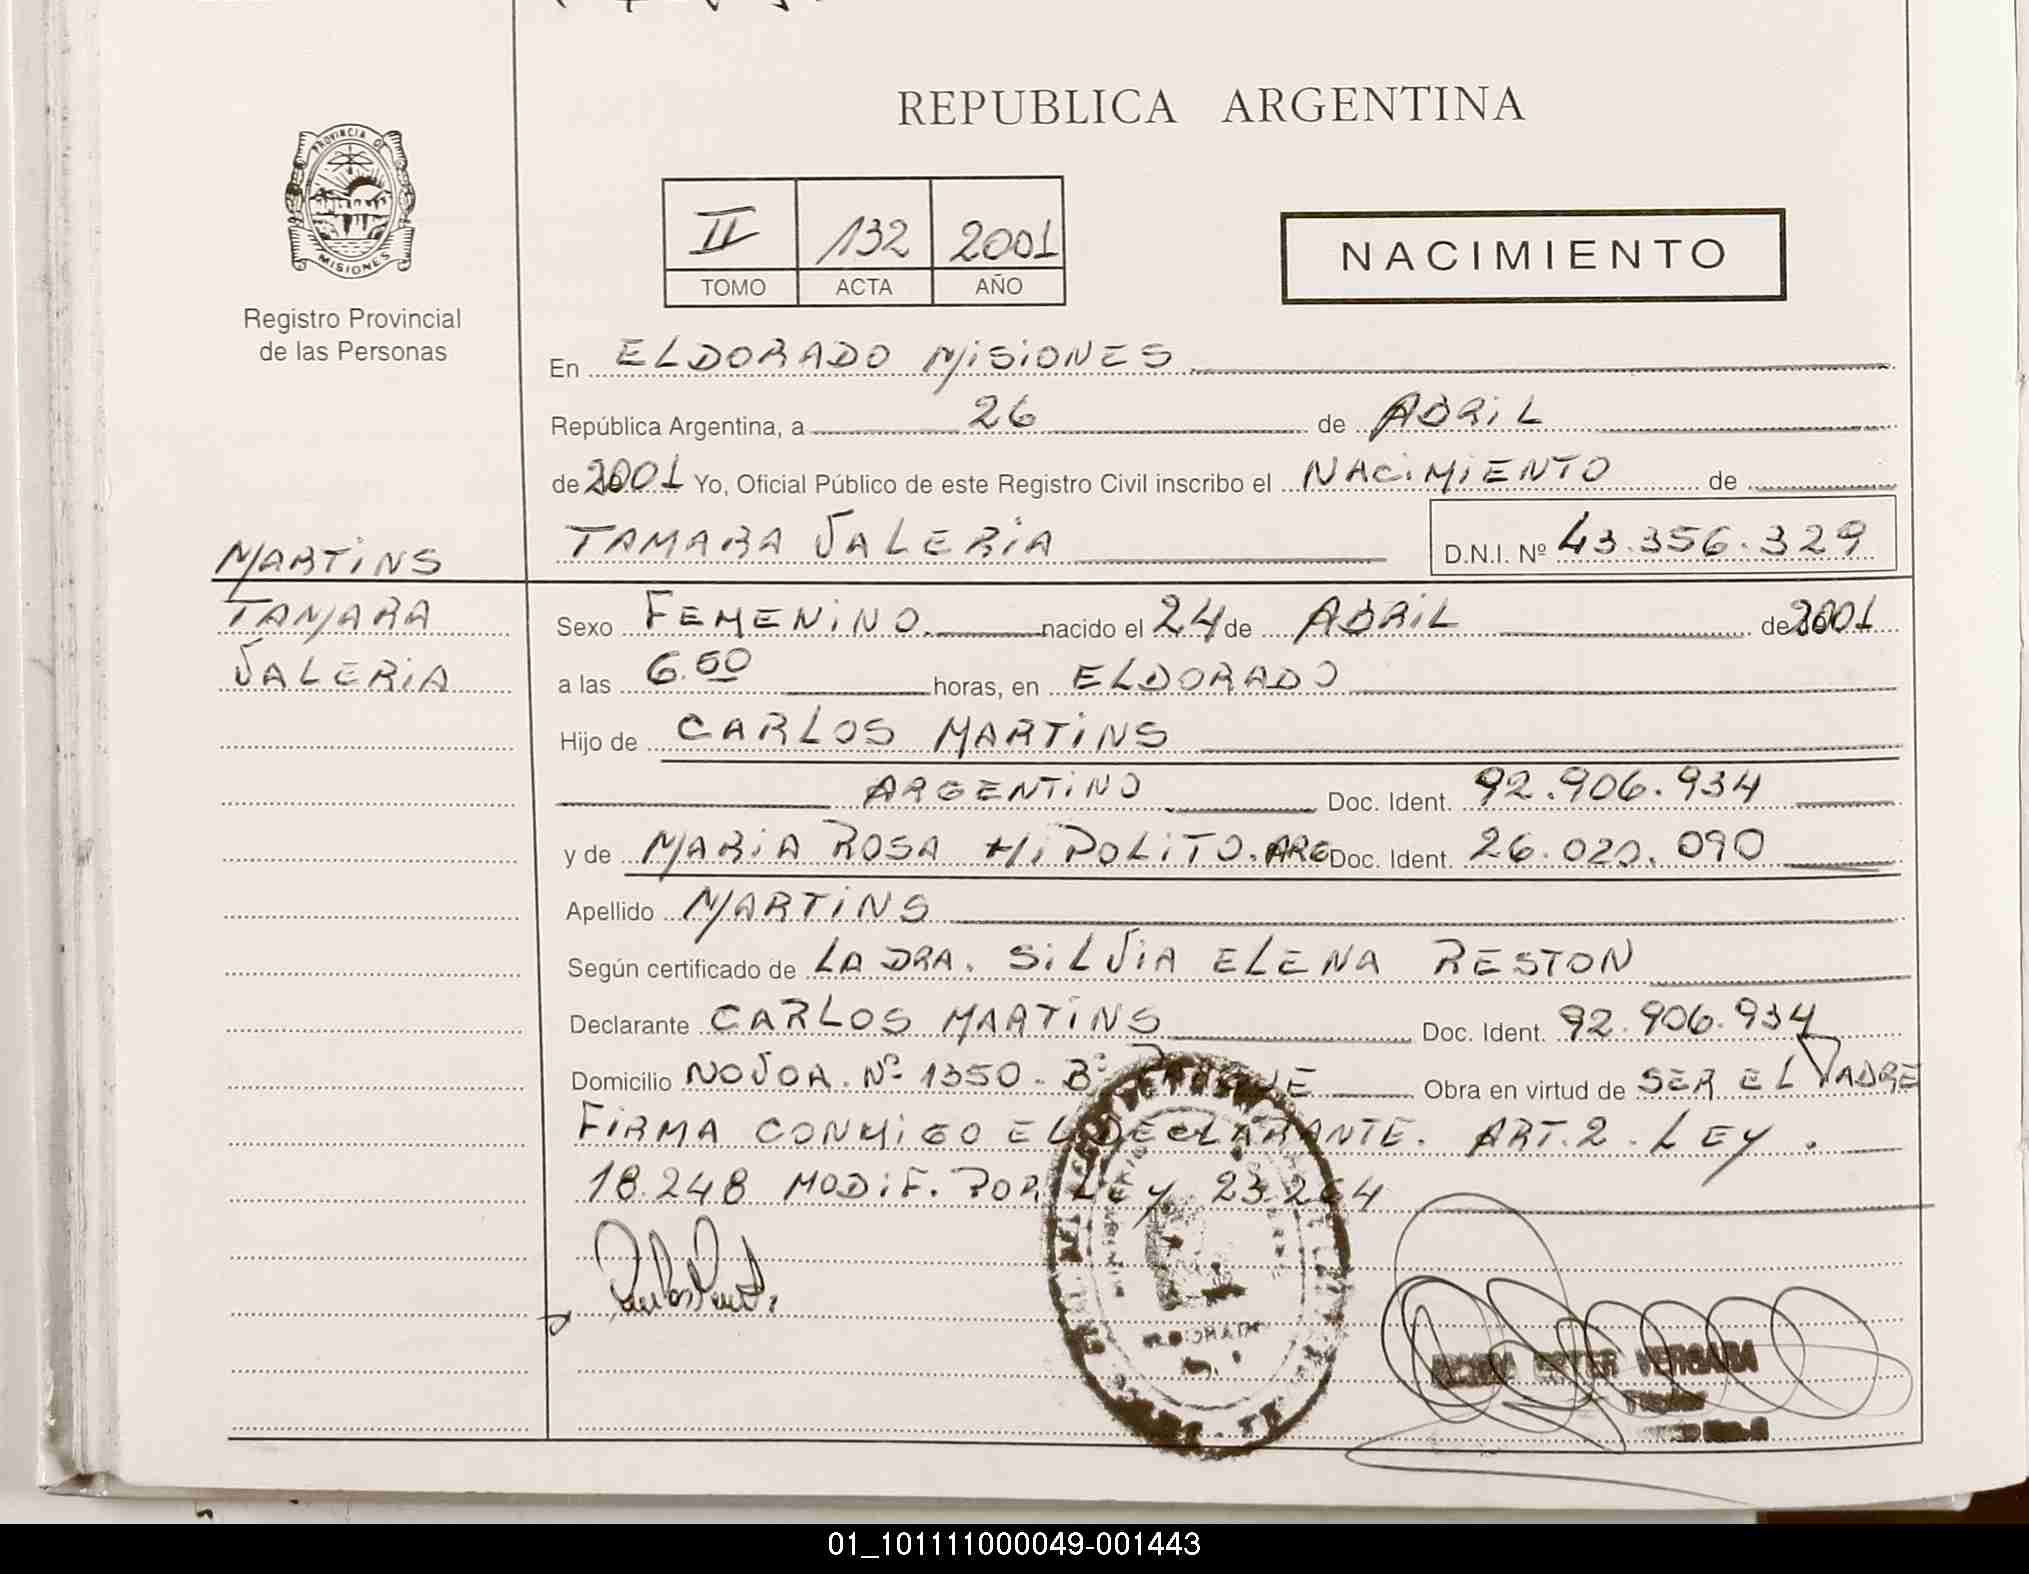 REPUBLICA ARGENTINA
PROVINCIA DE
MISIONES
Registro Provincial
de las Personas
II 132 2001
TOMO ACTA AÑO
NACIMIENTO
En ELDORADO MISIONES
República Argentina, a 26 de ABRIL
de 2001 Yo, Oficial Público de este Registro Civil inscribo el NACIMIENTO de
TAMARA VALERIA D.N.I. Nº 43.356.329
MARTINS
TAMARA
VALERIA
Sexo FEMENINO nacido el 24 de ABRIL de 2001
a las 6.50 horas, en ELDORADO
Hijo de CARLOS MARTINS
ARGENTINO Doc. Ident. 92.906.934
y de MARIA ROSA HIPOLITO. ARG Doc. Ident. 26.020.090
Apellido MARTINS
Según certificado de LA DRA. SILVIA ELENA RESTON
Declarante CARLOS MARTINS Doc. Ident. 92.906.934
Domicilio NOVOA. Nº 1350. Bº PARQUE Obra en virtud de SER EL PADRE
FIRMA CONMIGO EL DECLARANTE. ART. 2. LEY.
18.248 MODIF. POR LEY 23.264
ESTER VERGARA
01_101111000049-001443